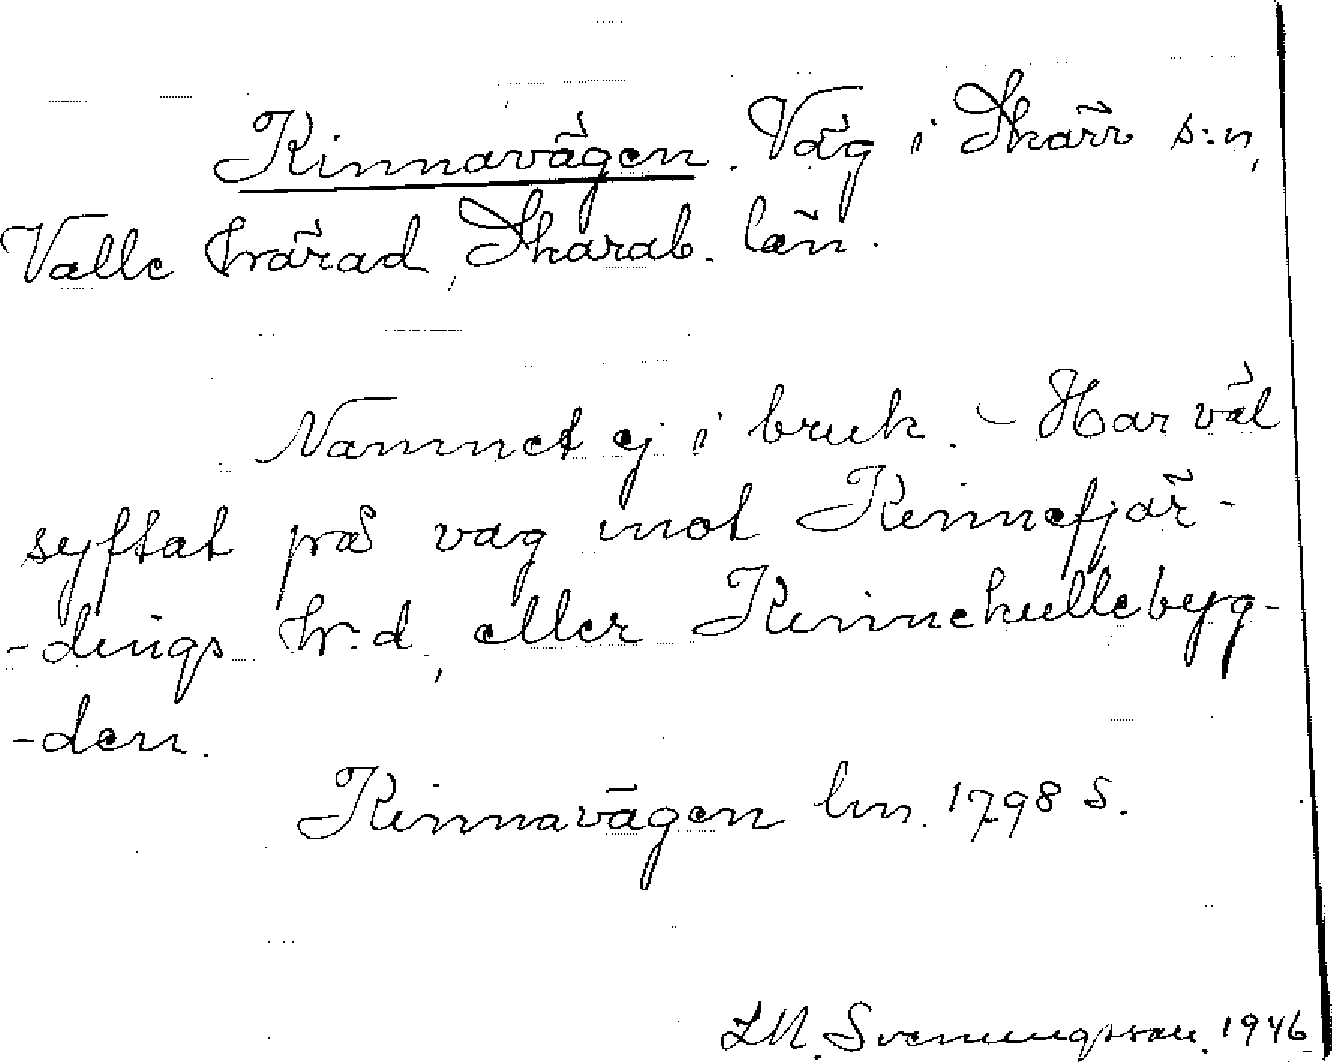 Kinnavägen. Väg i Skärv s:n,
Valle härad, Skarab. län.
Namnet ej i bruk. - Har väl
syftat på väg mot Kinnefjär-
-dings h:d, eller Kinnekullebyg-
-den.
Kinnavägen lm. 1798 S.
Svenungsson. 1946